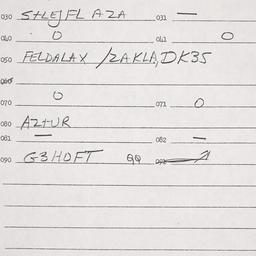 030 S+LEJFLAZA 031 —
040 0 041 0
050 FELDALAX /ZAKLA,DK35
060
070 0 071 0
080 AZ+UR
081 — 082 —
090 G3HOFT QQ 092